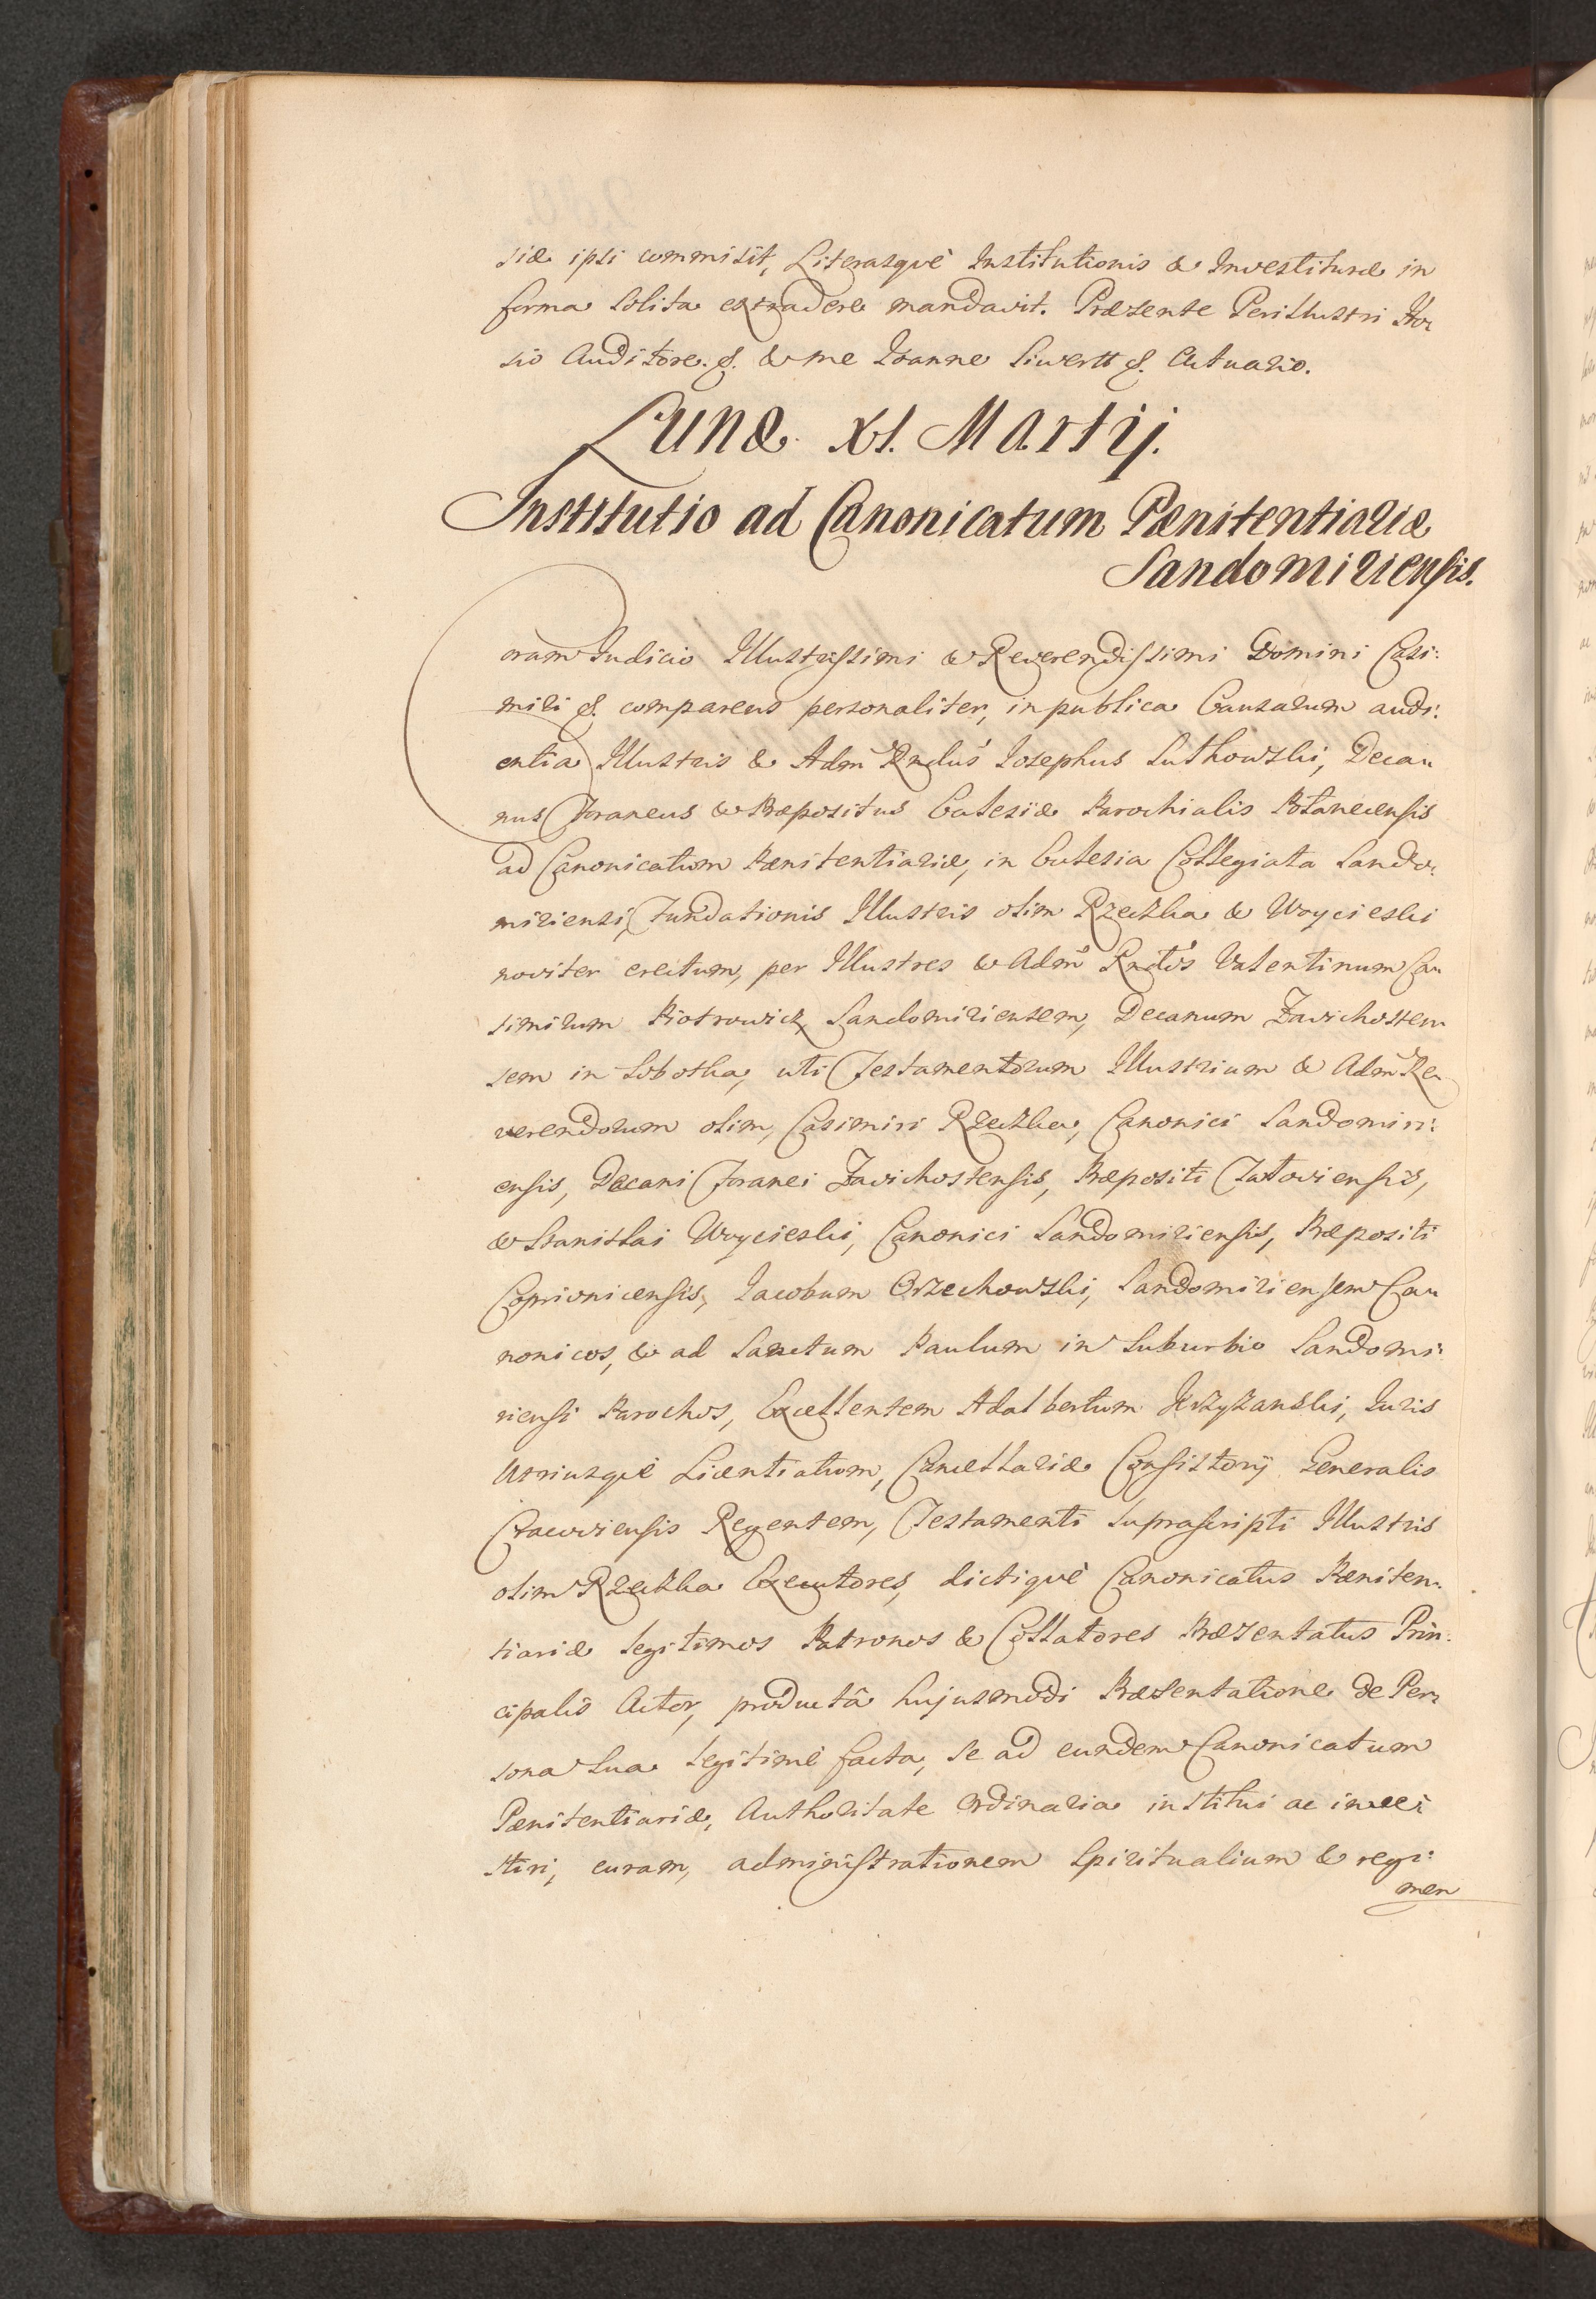 siæ ipsi commisit, Literasquè Institutionis & Investituræ in
forma solita extradere mandavit. Præsente Perillustri Hor¬
sio Auditore &. & me Ioanne Siwertt &. Actuario.
Lunæ XI. Martij.
Institutio ad Canonicatum Pænitentiariæ
Sandomiriensis.
Coram Iudicio Illustrissimi & Reverendissimi Domini Casi:
miri &. comparens personaliter, in publica Causarum audi:
entia Illustris & Adm Rndus Iosephus Sutkowski, Deca¬
nus Foraneus & Præpositus Ecclesiæ Parochialis Polanecensis
ad Canonicatum Pænitentiariæ, in Ecclesia Collegiata Sando¬
miriensi, Fundationis Illustris olim Rzeczka & Woycieski
noviter erectum, per Illustres & Adm Rndos Valentinum Ca¬
simirum Piotrowicz Sandomiriensem, Decanum Zavichosten¬
sem in Sobotka, uti Testamentorum Illustrium & Adm Re¬
verendorum olim, Casimiri Rzeczka, Canonici Sandomiri:
ensis, Decani Foranei Zavichostensis, Præpositi
& Stanislai Woycieski, Canonici Sandomiriensis, Præpositi
Coprionicensis, Iacobum Orzechowski, Sandomiriensem Ca¬
nonicos, & ad Sanctum Paulum in Suburbio Sandomi:
riensi Parochos, Excellentem Adalbertum Krzyzanski, Iuris
Utriusquè Licentiatum, Cancellariæ Consistorij Generalis
Cracoviensis Regentem, Testamenti suprascripti Illustris
olim Rzeczka Executores, dictiquè Canonicatus Pæniten¬
tiariæ legitimos Patronos & Collatores Præsentatus Prin¬
cipalis Actor, productâ hujusmodi Præsentatione de Per¬
sona Sua legitimè facta, se ad eundem Canonicatum
Pænitentiariæ, Authoritate Ordinaria institui ac inve¬
stiri, curam, administrationem Spiritualium & regi:
men